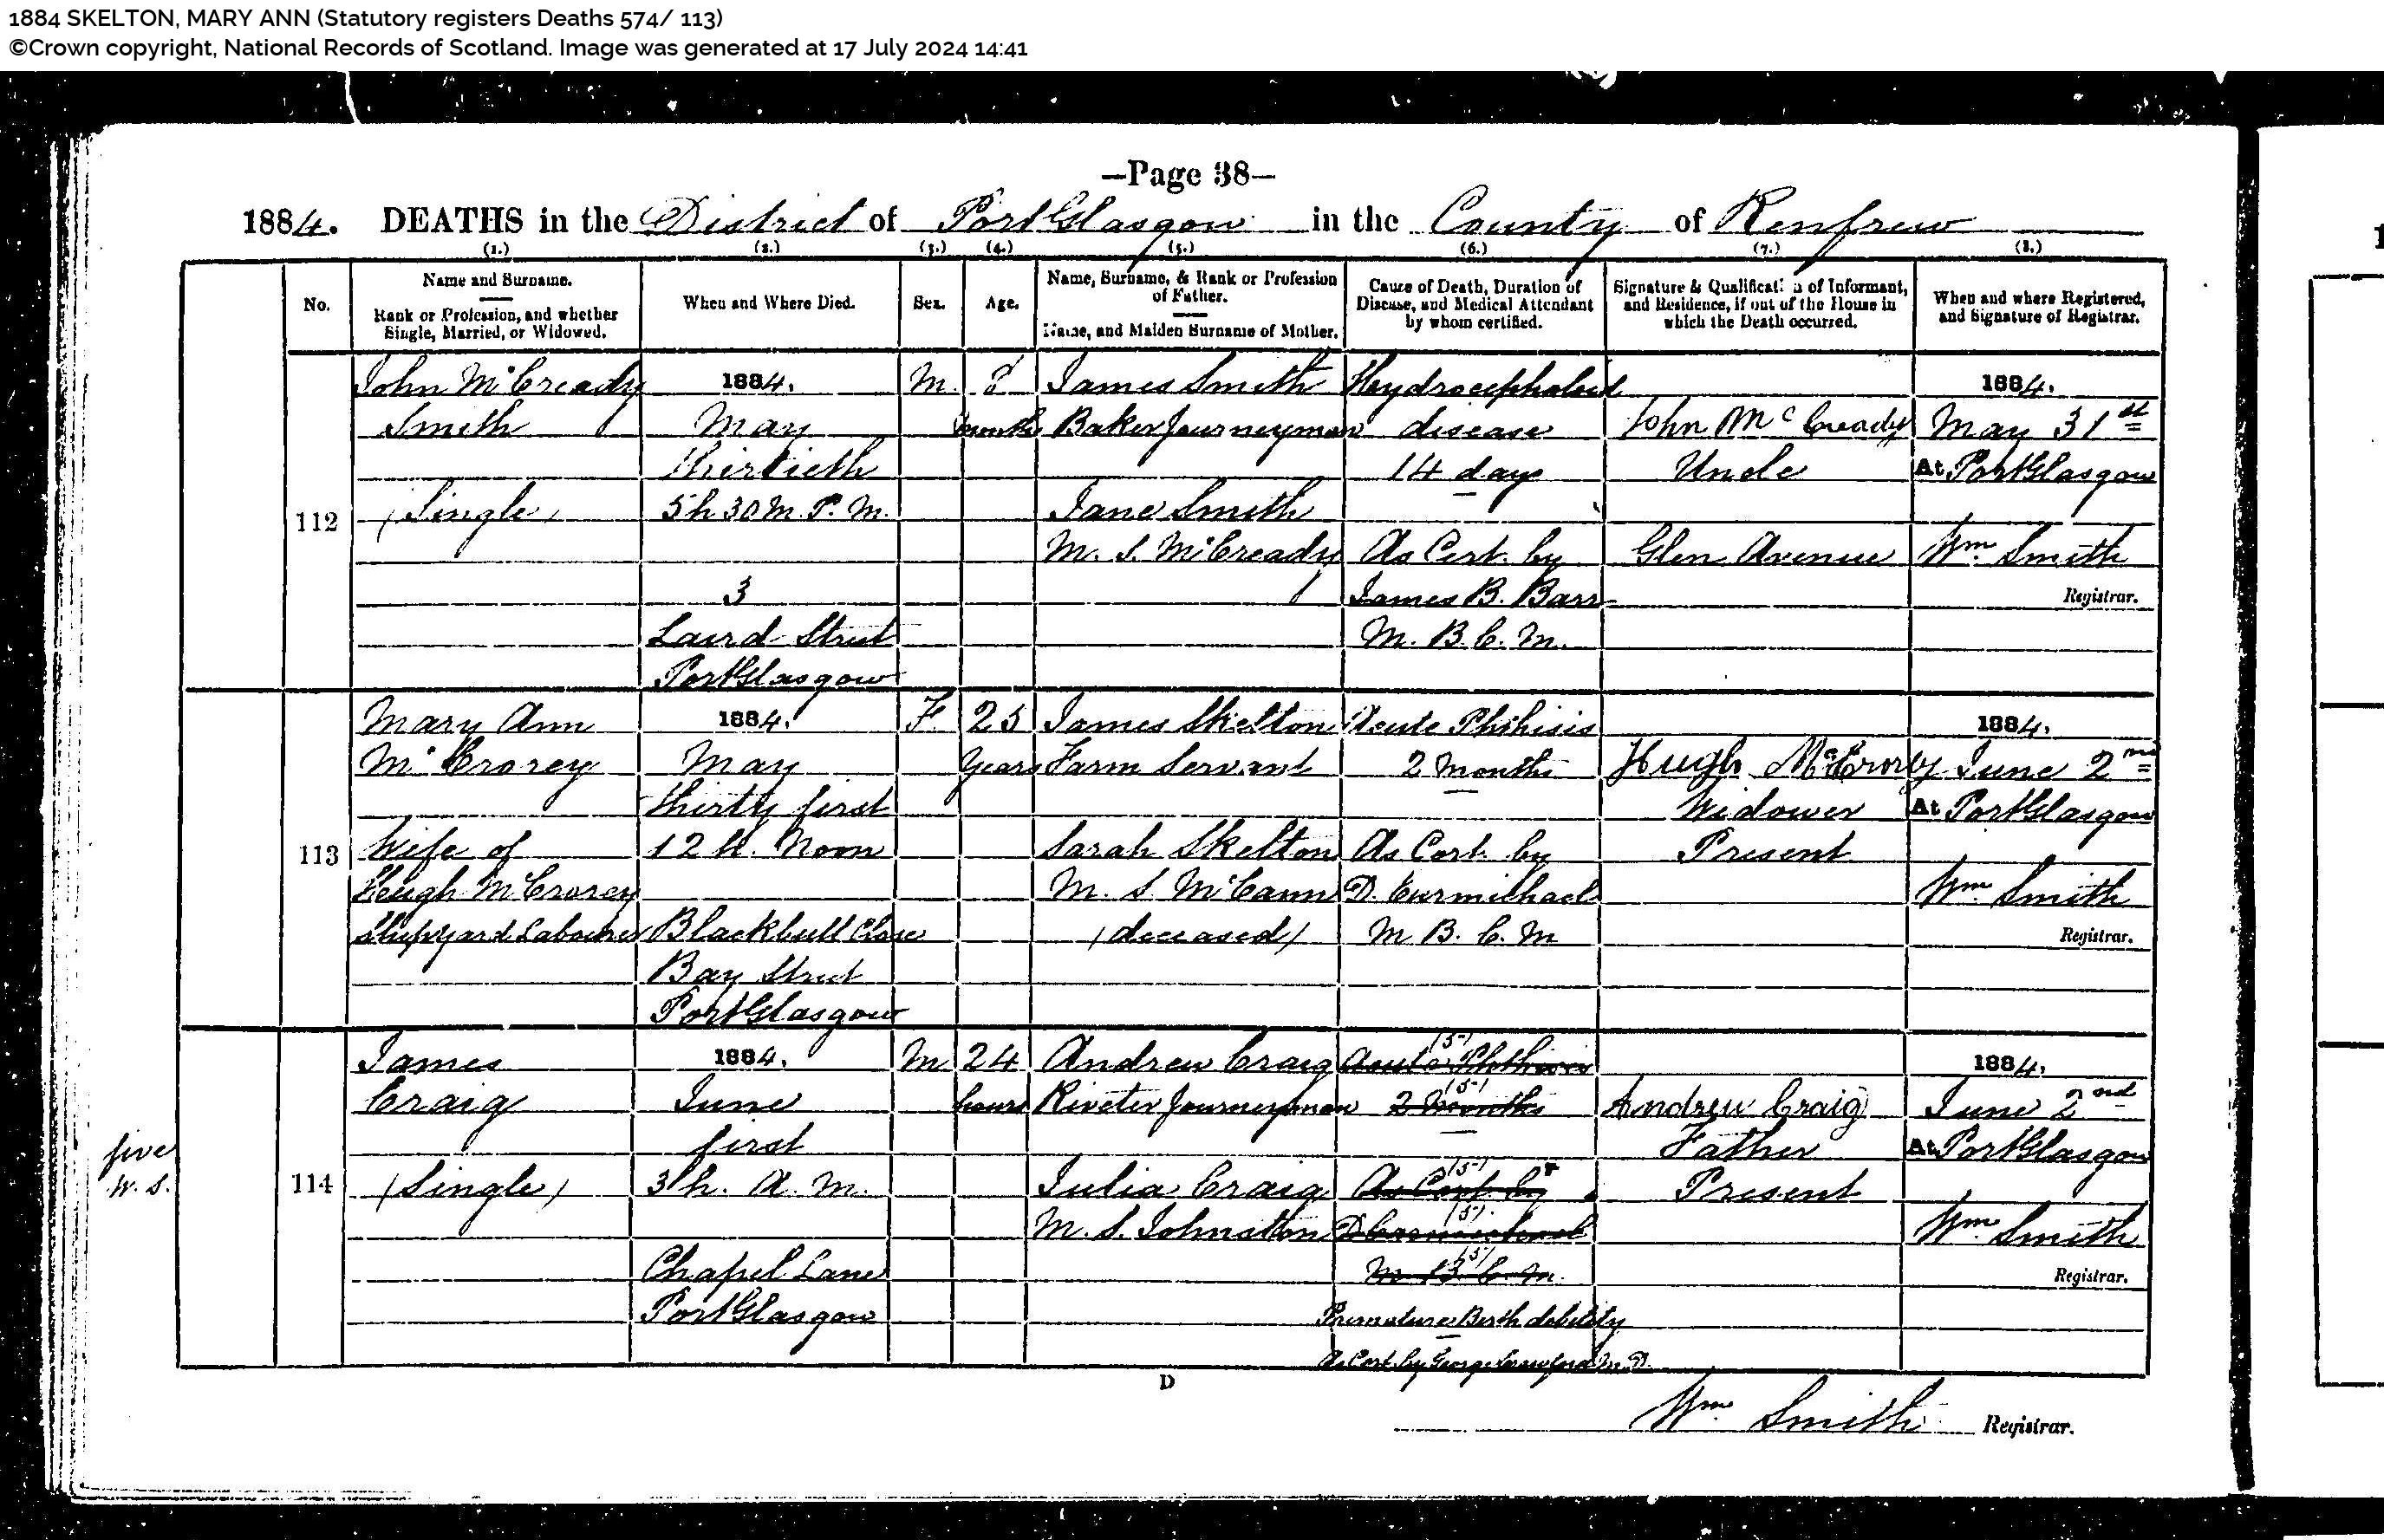 1884 SKELTON, MARY ANN (Statutory registers Deaths 574/ 113)
©Crown copyright, National Records of Scotland. Image was generated at 17 July 2024 14:41
—Page 38—
1884. DEATHS in the District of Port Glasgow in the County of Renfrew
(1.) (2.) (3.) (4.) (5.) (6.) (7.) (8.)
No.
Name and Surname.
Rank or Profession, and whether
Single, Married, or Widowed.
When and Where Died.
Sex.
Age.
Name, Surname, & Rank or Profession
of Father.
Name, and Maiden Surname of Mother.
Cause of Death, Duration of
Disease, and Medical Attendant
by whom certified.
Signature & Qualification of Informant,
and Residence, if out of the House in
which the Death occurred.
When and where Registered,
and Signature of Registrar.
112
John McCready
Smith
(Single)
1884.
May
thirtieth
5h 30m P.M.
3
Laird Street
Port Glasgow
M.
months
James Smith
Baker Journeyman
Jane Smith
M. S. McCready
Hydrocephaloid
disease
14 days
As Cert. by
James B. Barr
M. B. C. M.
John McCready
Uncle
Glen Avenue
1884.
May 31st
At Port Glasgow
Wm. Smith
Registrar.
113
Mary Ann
McCrorey
Wife of
Hugh McCrorey
Shipyard Labourer
1884.
May
thirty first
12 H. Noon
Blackbull Close
Bay Street
Port Glasgow
F.
25
Years
James Skelton
Farm Servant
Sarah Skelton
M. S. McCann
(deceased)
Acute Phthisis
2 Months
As Cert. by
D. Carmichael
M B. C. M
Hugh McCrorey
Widower
Present
1884.
June 2nd
At Port Glasgow
Wm. Smith
Registrar.
five
W. S.
114
James
Craig
(Single)
1884.
June
first
3h. A. M.
Chapel Lane
Port Glasgow
M
24
hours
Andrew Craig
Riveter Journeyman
Julia Craig
M. S. Johnston
(5)
Acute Phthisis
(5)
2 Months
(5)
As Cert. by
(5)
D Carmichael
(5)
M. B. C. M.
Premature Birth debility
As Cert. by George Crawford M. D.
Andrew Craig
Father
Present
1884.
June 2nd
At Port Glasgow
Wm. Smith
Registrar.
D
Wm. Smith Registrar.